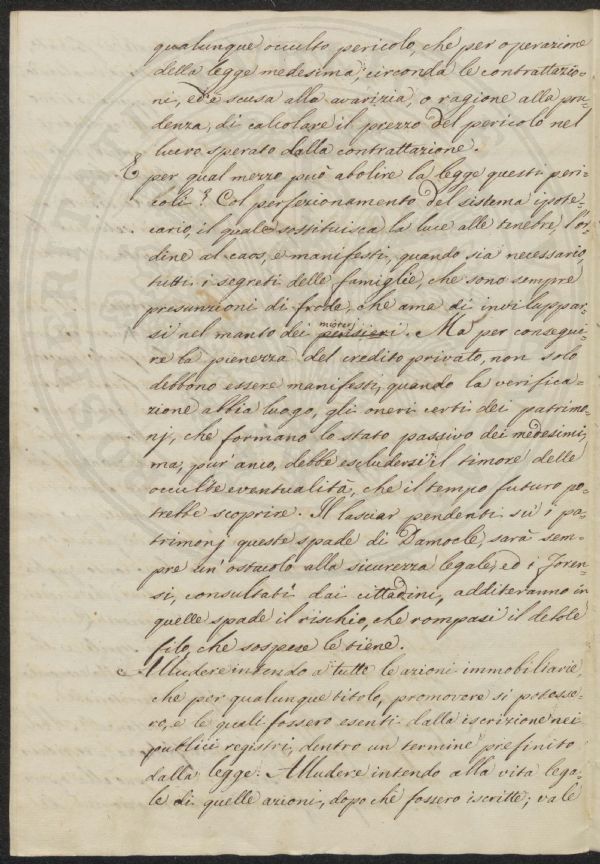 qualunque occulto pericolo, che per operazione
della legge medesima, circonda le contrattazio-
ni, ed è scusa alla avarizia, o ragione alla pru-
denza, di calcolare il prezzo del pericolo nel
lucro sperato dalla contrattazione.
E per qual mezzo può abolire la legge questi peri-
coli? Col perfezionamento del sistema ipote-
cario, il quale sostituisca la luce alle tenebre, l'or-
dine al caos, e manifesti, quando sia necessario,
tutti i segreti delle famiglie, che sono sempre
presunzioni di frode, che ama di inviluppar-
si nel manto dei pensieri misterj. Ma per consegui-
re la pienezza del credito privato, non solo
debbono essere manifesti, quando la verifica-
zione abbia luogo, gli oneri certi dei patrimo-
nj, che formano lo stato passivo dei medesimi,
ma, pur anco, debbe escludersi il timore delle
occulte eventualità, che il tempo futuro po-
trebbe scoprire. Il lasciar pendenti su i pa-
trimonj queste spade di Damocle, sarà sem-
pre un'ostacolo alla sicurezza legale, ed i Foren-
si, consultati dai cittadini, additeranno in
quelle spade il rischio, che rompasi il debole
filo, che sospese le tiene.
Alludere intendo a tutte le azioni immobiliarie,
che per qualunque titolo, promovere si potesse-
ro, e le quali fossero esenti dalla iscrizione nei
pubblici registri, dentro un termine prefinito
dalla legge. Alludere intendo alla vita lega-
le di quelle azioni, dopo che fossero iscritte; va le